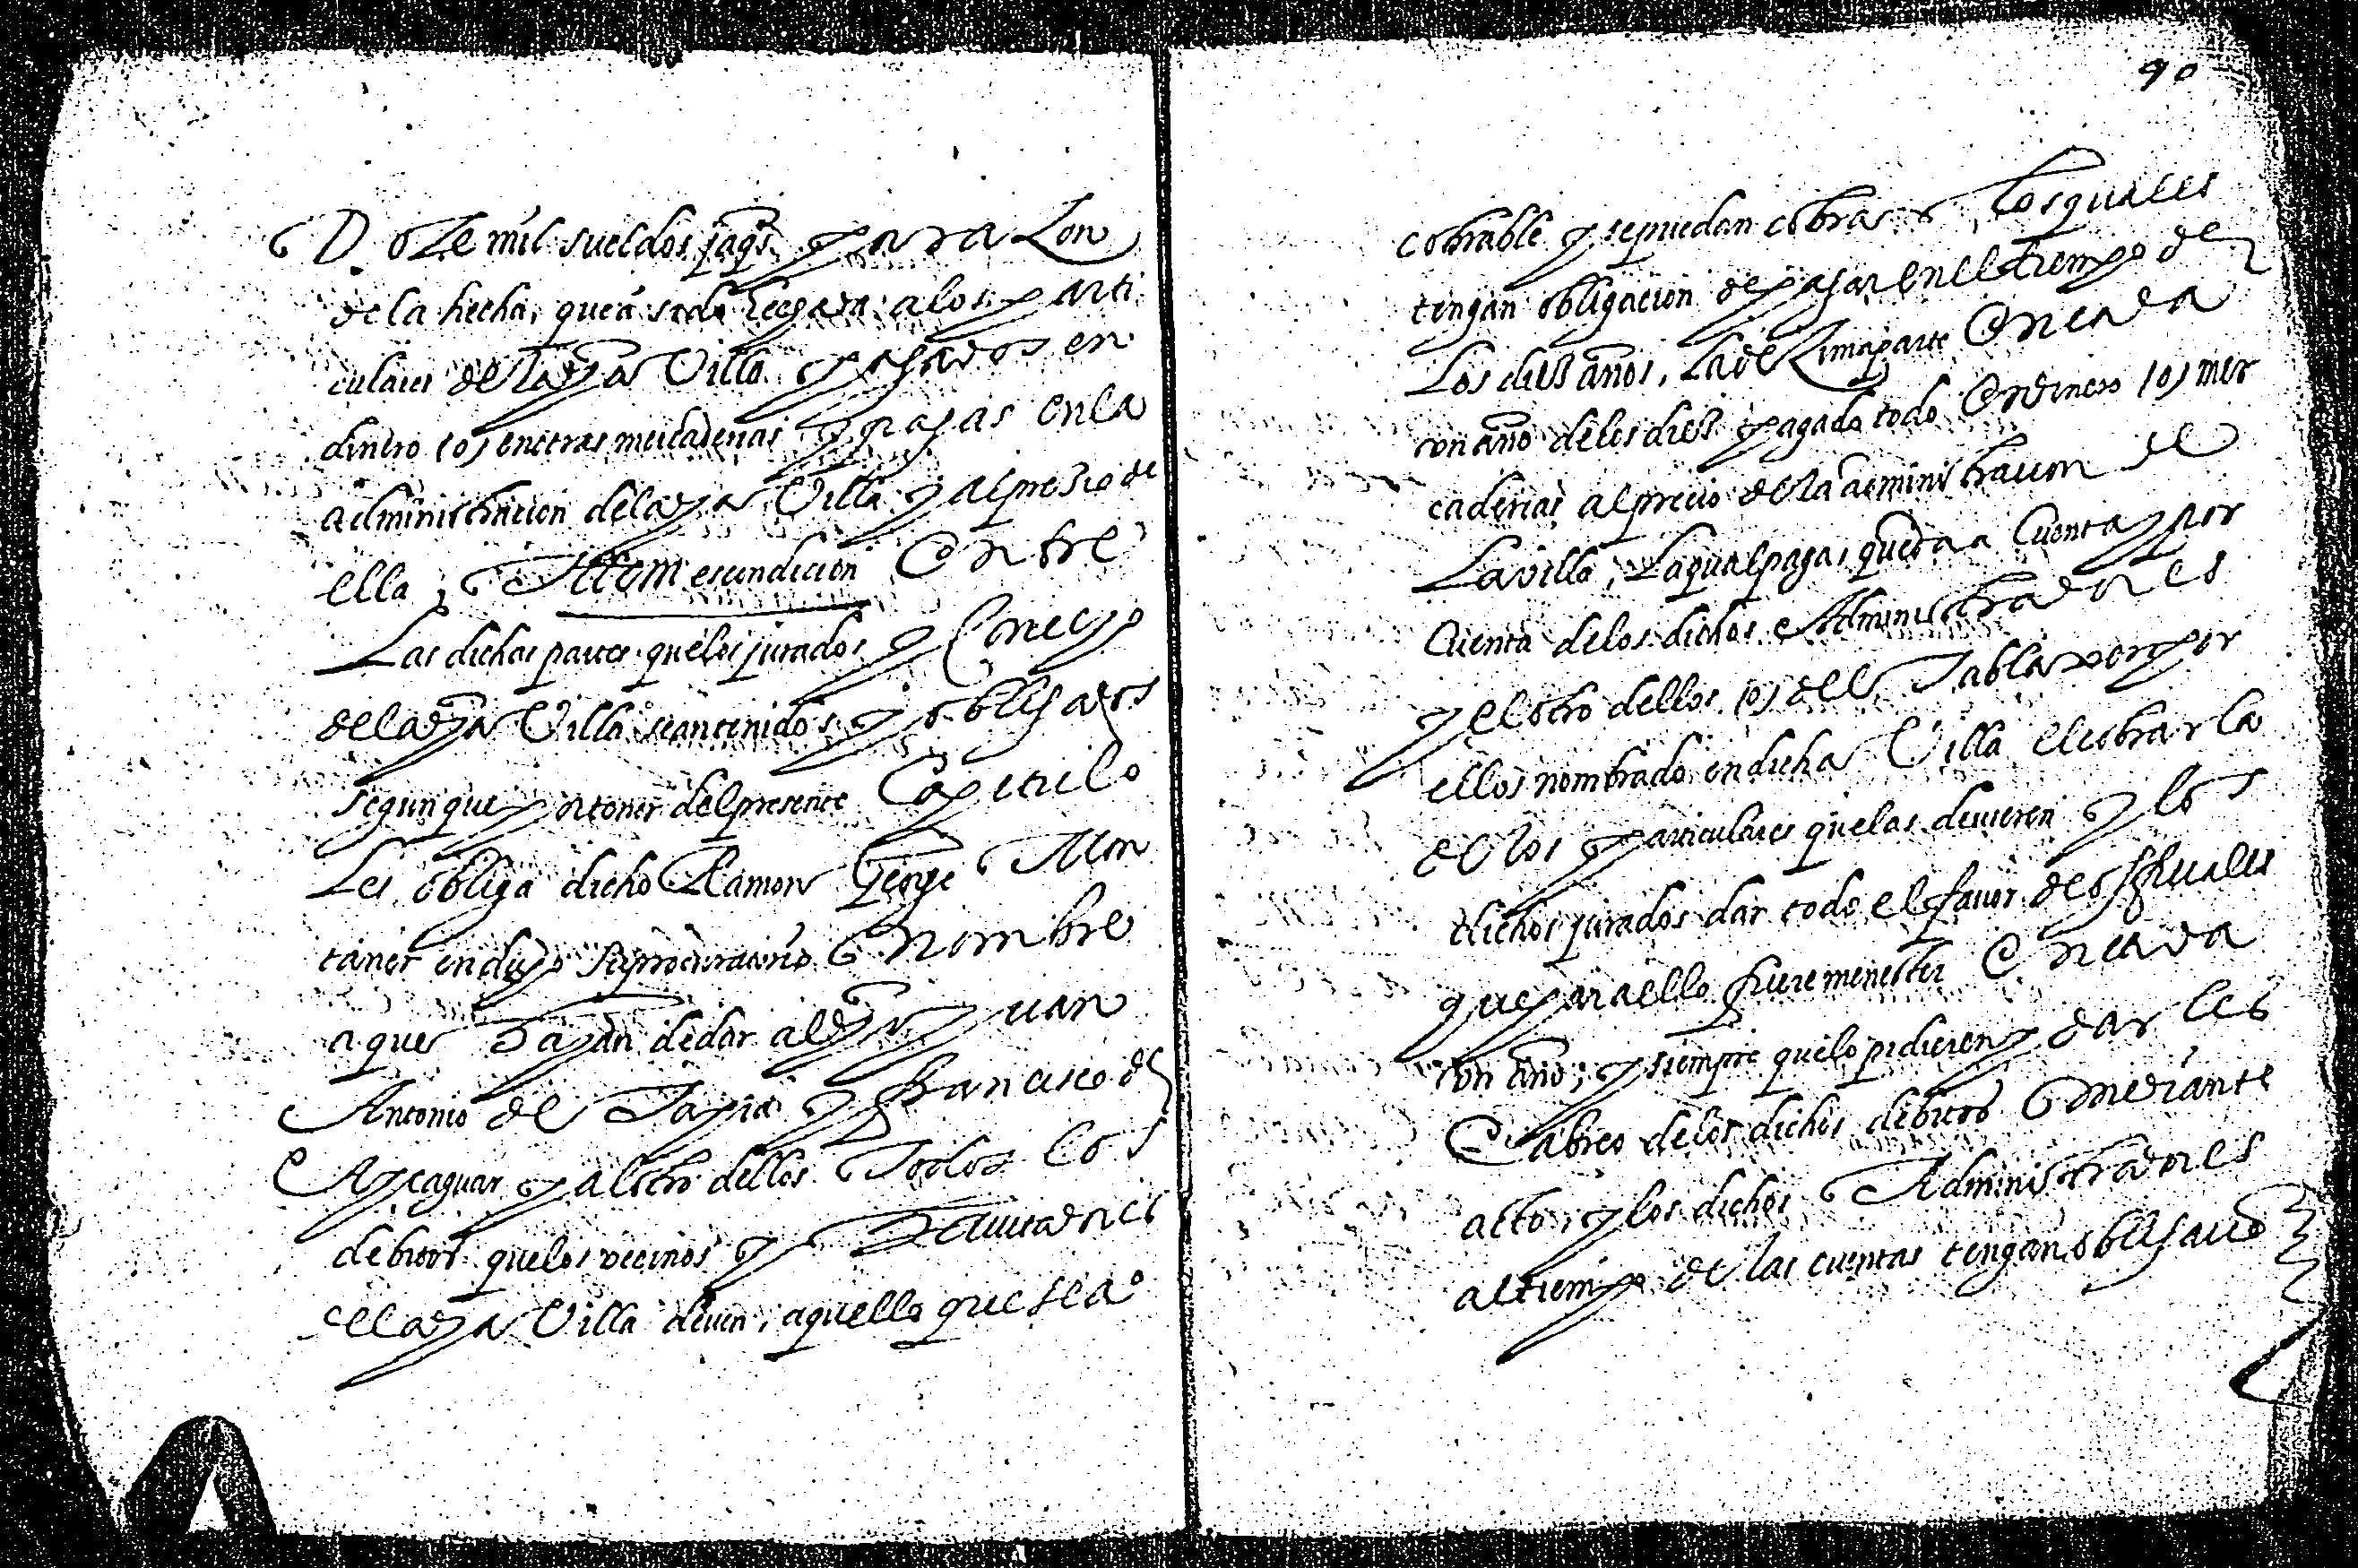 Doze mil sueldos jaqs. para con
de la hecha, que a sido llegada a los parti
culares de la dha Villa pagados en
dinero (o) en otras mercaderias y pagas en la
administracion de la dha Villa y al presio de
ella, Ittem es condicion Entre
Las dichas partes que los jurados y Concejo
de la dha Villa sean tenidos y obligados
segun que por tenor del presente Capitulo
Les obliga dicho Ramon George Mon
taner en dicho su procuratorio Nombre
a que hayan de dar al dho Juan
Antonio de Tapia y francisco de
Azcaguar y al otro dellos Todos los
debitos que los vecinos y havitadores
de la dha Villa deven, aquello que sea
90
cobrable y se puedan cobrar Los quales
tengan obligacion de pagar en el tiempo de
Los diez años, La dezima parte En cada
con año de los diez pagado todo En dinero (o) mer
caderias al precio de la administracion de
La villa, La qual paga, queda a Cuenta y por
Cuenta de los dichos Administradores
y el otro dellos (o) del Tablero por
ellos nombrado en dicha Villa el cobrarla
de los particulares que las devieren y los
dichos jurados dar todo el favor de oficiales
que para ello fuere menester En cada
con año; y siempre que lo pidieren y darles
Cabreo de los dichos debitos Mediante
acto, y los dichos Administradores
al tiempo de las cuentas tengan obligacio